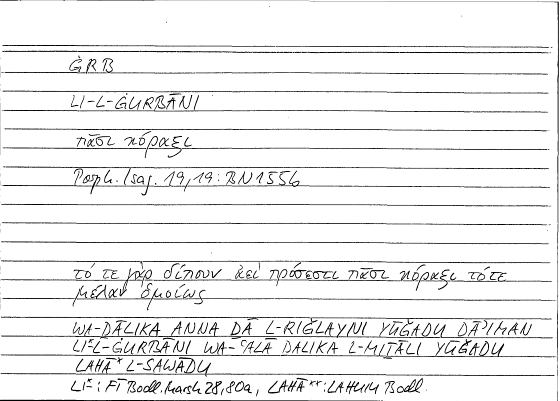 ĠRB
LI-L-ĠURBĀNI
πᾶσι κόραξι
Porph. Isag. 19,19: BN1556
τό τε γὰρ δίπουν ἀεὶ πρόσεστι πᾶσι κόραξι τό τε
μέλαν ὁμοίως
WA-ḎĀLIKA ANNA ḎĀ L-RIǦLAYNI YŪǦADU DĀʾIMAN
LI*L-ĠURBĀNI WA-ʿALĀ ḎALIKA L-MIṮĀLI YŪǦADU
LAHĀ* L-SAWĀDU
LI*: FĪ Bodl. Marsh 28, 80a, LAHĀ**: LAHUM Bodl.